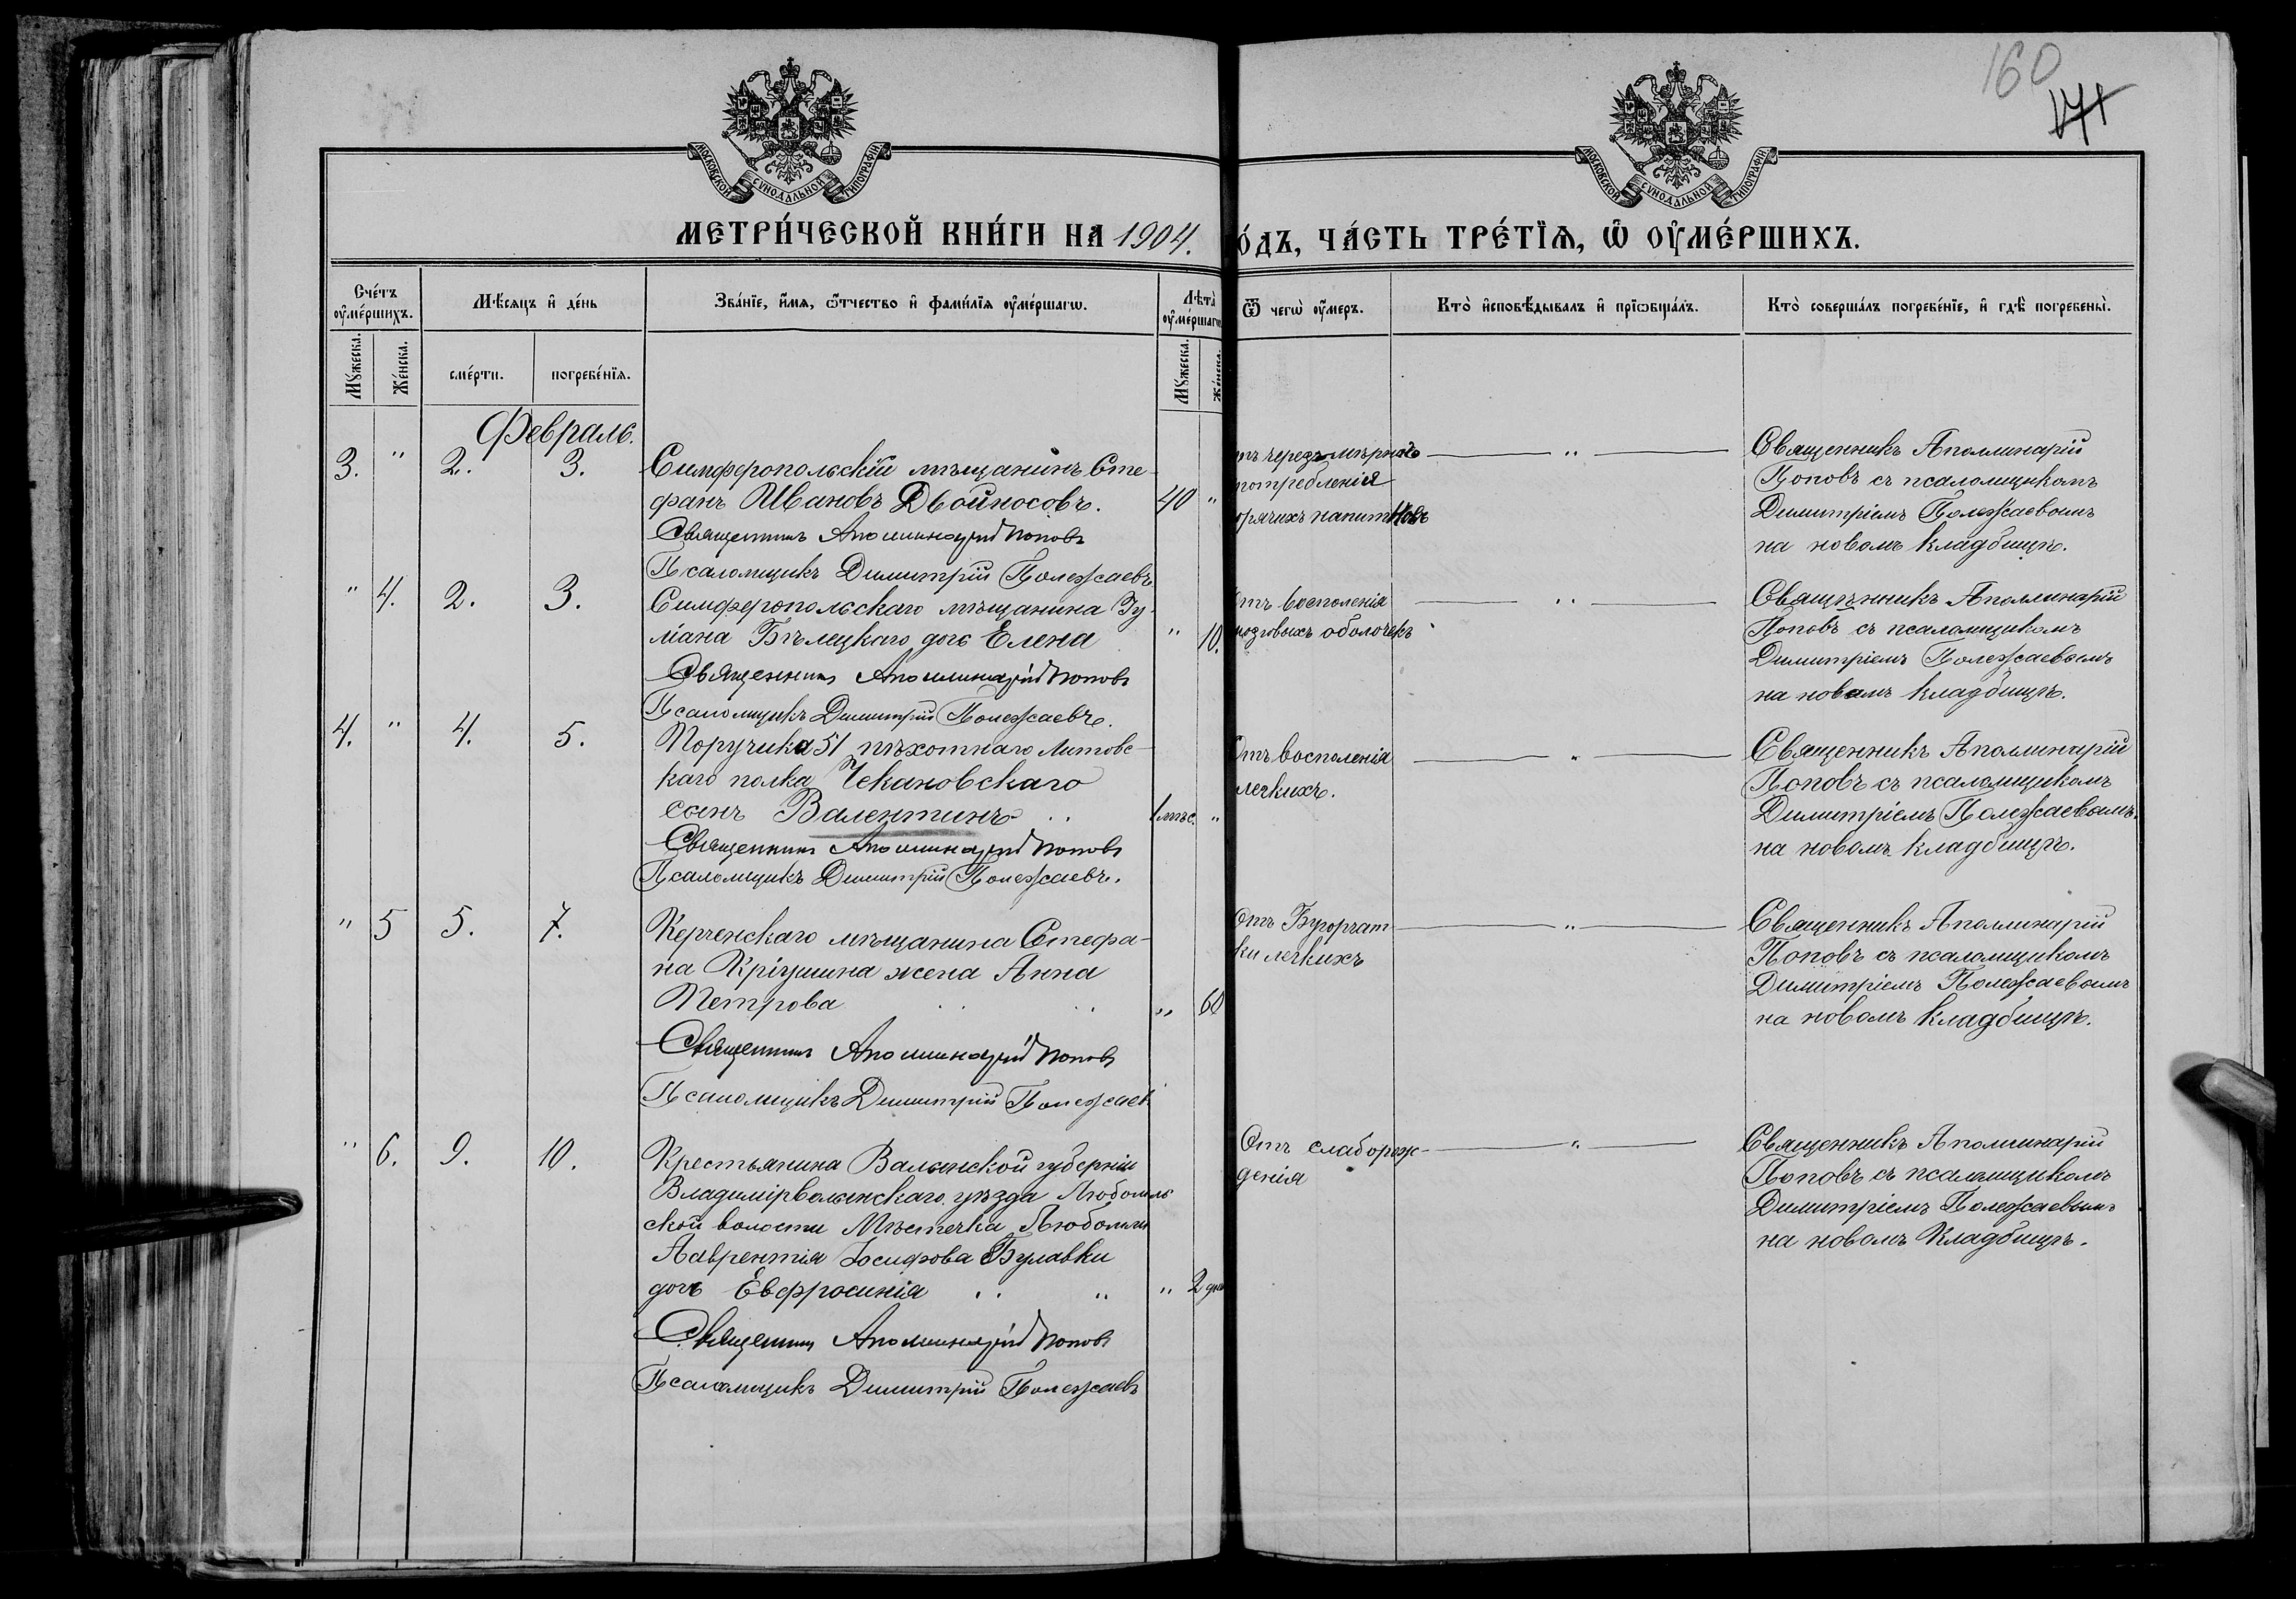 160
171
МОСКОВСКОЙ СѴНОДАЛЬНОЙ ТИПОГРАФІИ
МОСКОВСКОЙ СѴНОДАЛЬНОЙ ТИПОГРАФІИ
МЕТРИ́ЧЕСКОЙ КНИ́ГИ НА 1904. О́ДЪ, ЧА́СТЬ ТРЕ́ТЇѦ, Ѡ҆ ОУ҆МЕ́РШИХЪ.
Сче́тъ оу҆ме́ршихъ.
Мꙋ́жеска.
Же́нска.
Мѣ́сѧцъ и҆ де́нь
сме́рти.
погребе́нїѧ.
Зва́нїе, и҆́мѧ, ѻ҆́тчество и҆ фами́лїѧ оу҆ме́ршагѡ.
Лѣ̀та оу҆ме́ршагѡ
Мꙋ́жеска.
Же́нска.
Ѿ чегѡ̀ оу҆́меръ.
Кто̀ и҆сповѣ́дывалъ и҆ прїѡбща́лъ.
Кто̀ соверша́лъ погребе́нїе, и҆ гдѣ̀ погребены̀.
Февраль.
3. " 2. 3.
Симферопольскій мѣщанинъ Сте-
фанъ Ивановъ Двойносовъ. 40 "
Священникъ Аполлинарій Поповъ
Псаломщикъ Димитрій Полежаевъ
тъ черезмѣрнаго
потребленія
орячихъ напитковъ
"
Священникъ Аполлинарій
Поповъ съ псаломщикомъ
Димитріемъ Полежаевымъ
на новомъ кладбищѣ.
" 4. 2. 3.
Симферопольскаго мѣщанина Іу-
ліана Бѣлецкаго дочь Елена " 10.
Священникъ Аполлинарій Поповъ
Псаломщикъ Димитрій Полежаевъ.
Отъ восполенія
мозговыхъ оболочекъ
"
Священникъ Аполлинарій
Поповъ съ псаломщикомъ
Димитріемъ Полежаевымъ
на новомъ кладбищѣ.
4. " 4. 5.
Поручика 51 пѣхотнаго Литовс-
каго полка Чекановскаго
сынъ Валентинъ 1 мѣс. "
Священникъ Аполлинарій Поповъ
Псаломщикъ Димитрій Полежаевъ.
Отъ восполенія
легкихъ.
"
Священникъ Аполлинарій
Поповъ съ псаломщикомъ
Димитріемъ Полежаевымъ.
на новомъ кладбищѣ.
" 5 5. 7.
Керченскаго мѣщанина Стефа-
на Кріушина жена Анна
Петрова " 60
Священникъ Аполлинарій Поповъ
Псаломщикъ Димитрій Полежаевъ
Отъ Бугорчат
ки легкихъ
"
Священникъ Аполлинарій
Поповъ съ псаломщикомъ
Димитріемъ Полежаевымъ
на новомъ кладбищѣ.
" 6. 9. 10.
Крестьянина Валынской губерніи
Владимірволынскаго уѣзда Любомль
ской волости Мѣстечка Любомля
Лаврентія Іосифова Булавки
дочь Евфросинія " " 2 дня
Священникъ Аполлинарій Поповъ
Псаломщикъ Димитрій Полежаевъ
Отъ слаборож-
денія
"
Священникъ Аполлинарій
Поповъ съ псаломщикомъ
Димитріемъ Полежаевымъ
на новомъ Кладбищѣ.